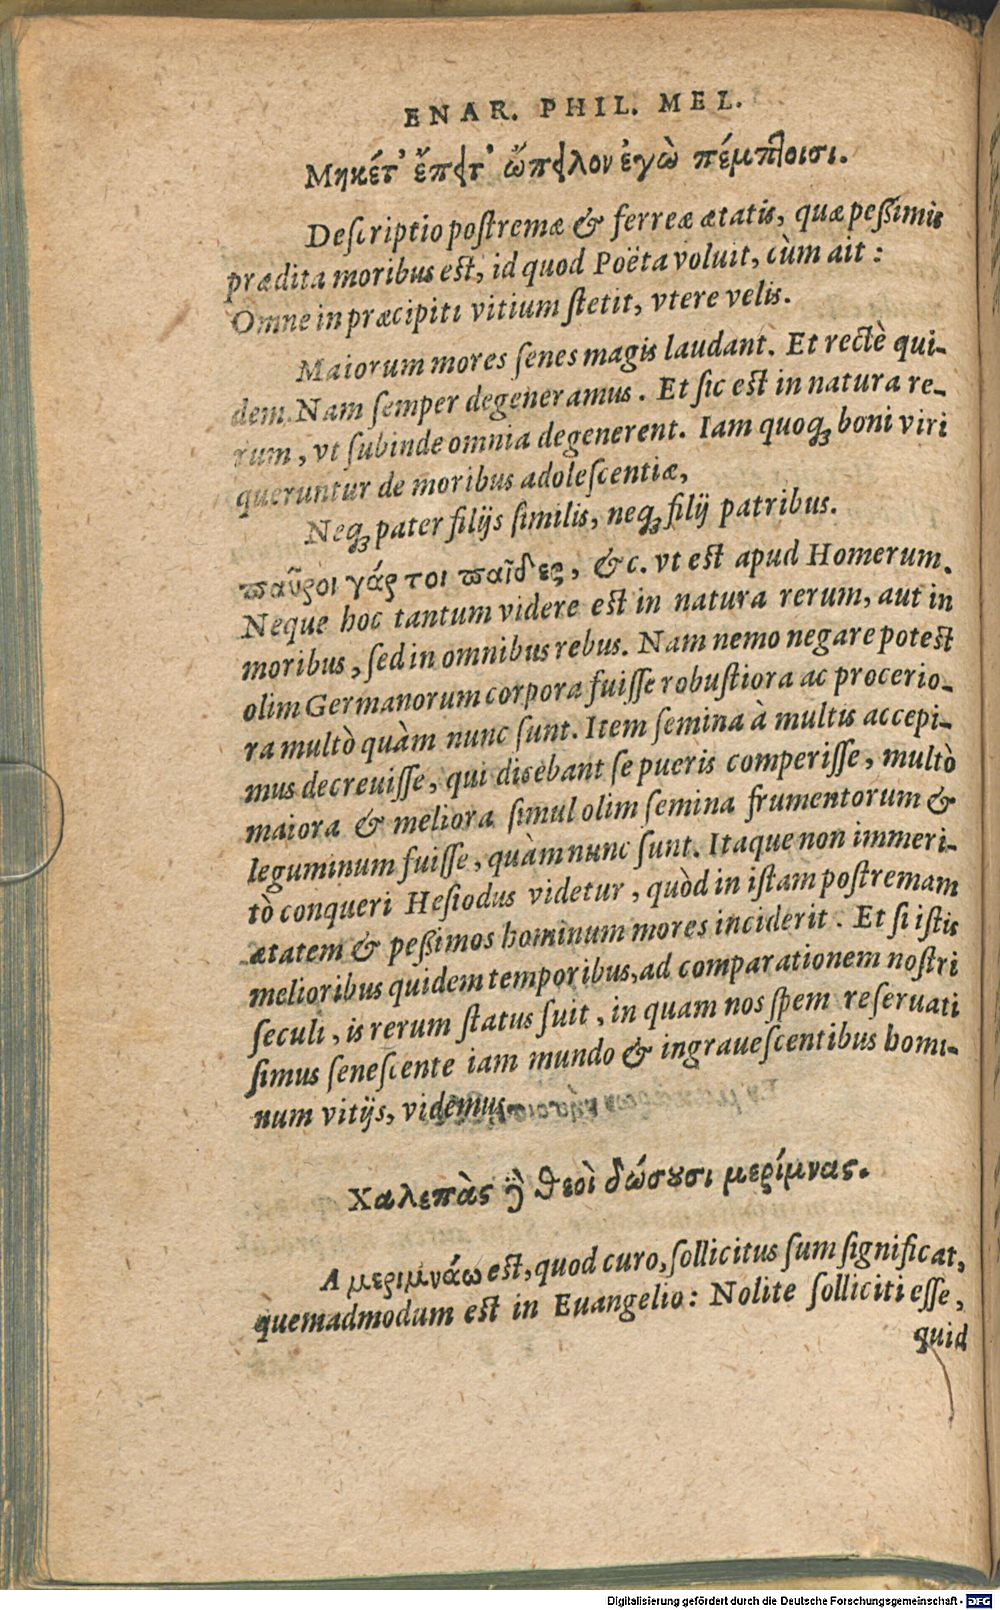 ENAR. PHIL. MEL.
Μηκέτ' ἔπειτ' ὤπειλον ἐγὼ πέμπτοισι.
Deſcriptio poſtremæ & ferreæ ætatis, quæ peßimis
prædita moribus est, id quod Poëta voluit, cùm ait:
Omne in præcipiti vitium ſtetit, vtere velis.
Maiorum mores ſenes magis laudant. Et rectè qui-
dem. Nam ſemper degeneramus. Et ſic est in natura re-
rum, vt ſubinde omnia degenerent. Iam quoq; boni viri
queruntur de moribus adoleſcentiæ,
Neq; pater filijs ſimilis, neq; filij patribus.
ϖαῦροι γάρ τοι ϖαῖδες, &c. vt est apud Homerum.
Neque hoc tantum videre est in natura rerum, aut in
moribus, ſed in omnibus rebus. Nam nemo negare potest
olim Germanorum corpora fuiſſe robuſtiora ac procerio-
ra multò quàm nunc ſunt. Item ſemina à multis accepi-
mus decreuiſſe, qui dicebant ſe pueris comperiſſe, multò
maiora & meliora ſimul olim ſemina frumentorum &
leguminum fuiſſe, quàm nunc ſunt. Itaque non immeri-
tò conqueri Heſiodus videtur, quòd in iſtam poſtremam
ætatem & peßimos hominum mores inciderit. Et ſi iſtis
melioribus quidem temporibus, ad comparationem noſtri
ſeculi, is rerum ſtatus fuit, in quam nos ſpem reſeruati
ſimus ſeneſcente iam mundo & ingraueſcentibus homi-
num vitijs, videmus.
Χαλεπὰς ȣ̓͂ θεοὶ δώσȣσι μερίμνας.
A μεριμνάω est, quod curo, ſollicitus ſum ſignificat,
quemadmodum est in Euangelio: Nolite ſolliciti eſſe,
quid
Digitalisierung gefördert durch die Deutsche Forschungsgemeinschaft - DFG